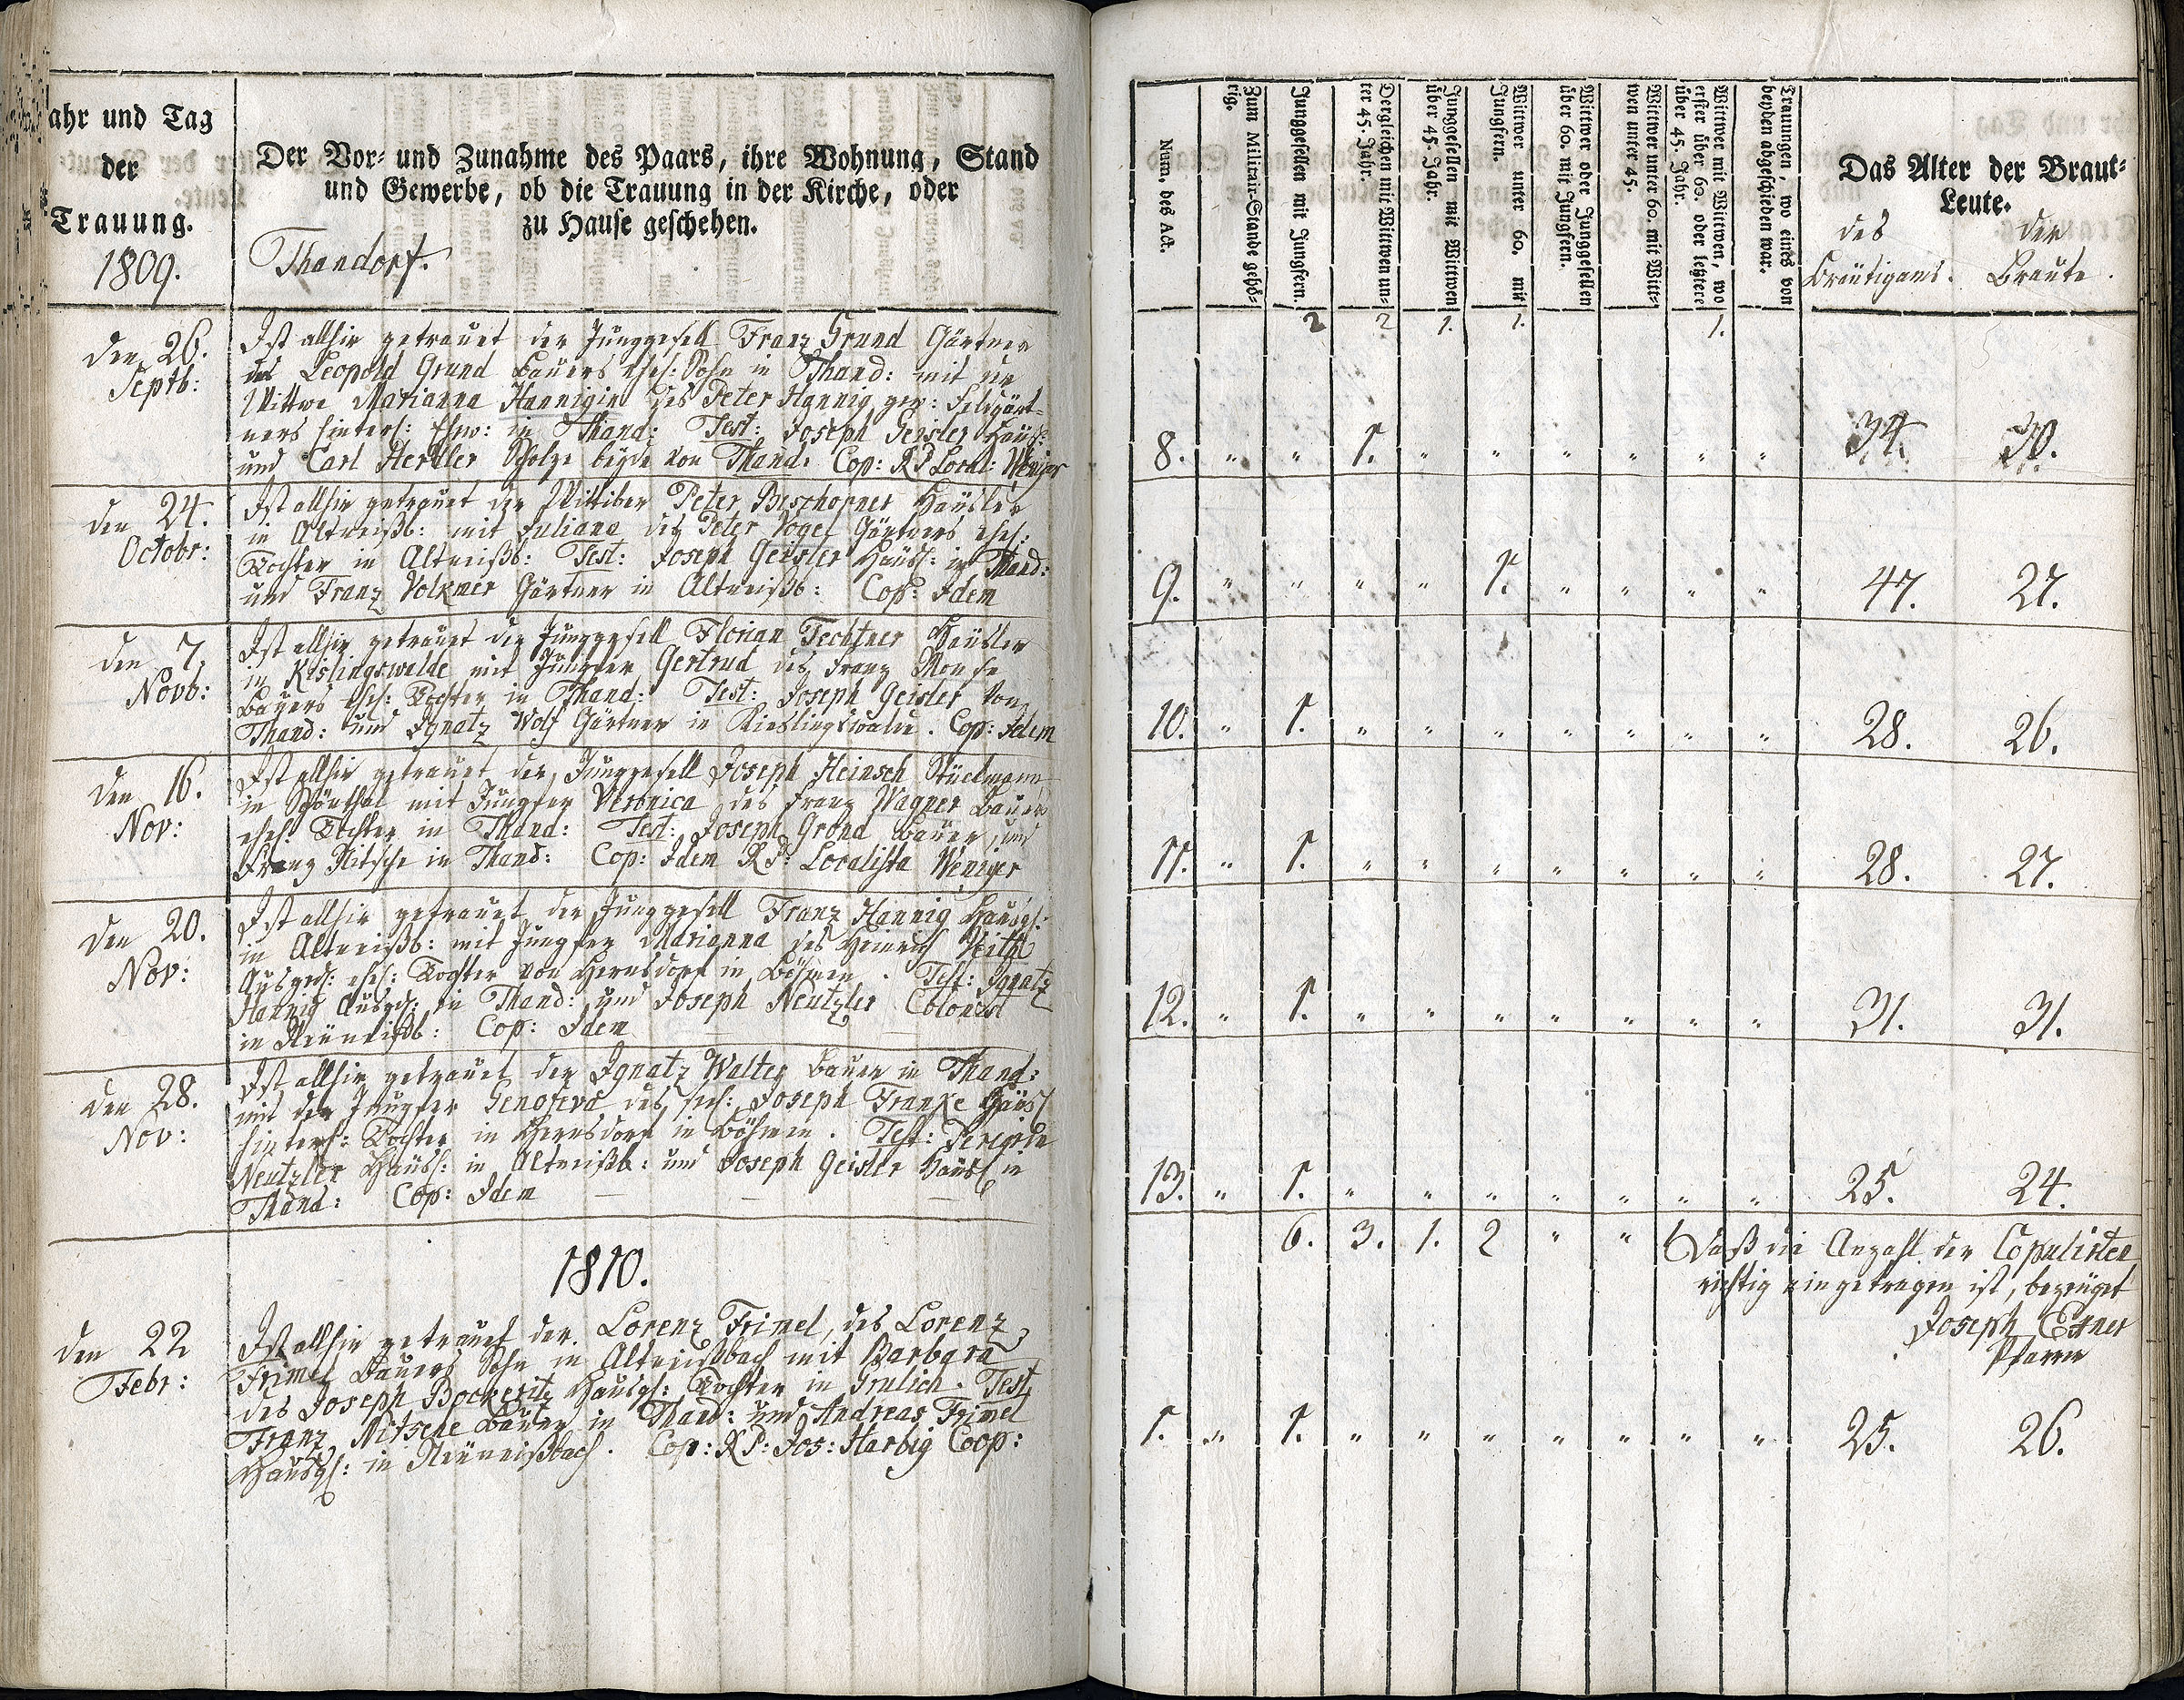 Jahr und Tag
der
Trauung.
1809.
Der Vor- und Zunahme des Paars, ihre Wohnung, Stand
und Gewerbe, ob die Trauung in der Kirche, oder
zu Hause geschehen.
Thandorf.
den 26.
Septb:
Ist allhir getrauet der Junggesell Franz Grund Gärtner
des Leopold Grund Bauers ehel: Sohn in Thand: mit der
Wittwe Marianna Hannigin des Peter Hannig gew: Feldgärt-
ners hinterl: Ehw: in Thand: Test: Joseph Geisler Häusl:
und Carl Hertler Scholze beyde von Thand: Cop: RP Local: Weniger
den 24.
Octobr:
Ist allhir getrauet der Wittiber Peter Beschorner Häusler
in Altneißb: mit Juliana des Peter Vogel Gärtners ehel:
Tochter in Altneißb: Test: Joseph Geisler Häusl: in Thand:
und Franz Volkmer Gärtner in Altneißb: Cop: Idem
den 7.
Novb:
Ist allhir getrauet der Junggesell Florian Techtner Häusler
in Kislingswalde mit Jungfer Gertrud des Franz
Bauers ehel: Tochter in Thand: Test: Joseph Geisler von
Thand: und Ignatz Wolf Gärtner in Kieslingswalde. Cop: Idem
den 16.
Nov:
Ist allhir getrauet der Junggesell Joseph Heinsch Stückmann
in Schönthal mit Jungfer Veronica des Franz Wagner Bauers
ehel: Tochter in Thand: Test: Joseph Grond Bauer, und
Franz Nitsche in Thand: Cop: Idem R.P: Localista Weniger
den 20.
Nov:
Ist allhir getrauet der Junggesell Franz Hannig Hausgl:
in Altneißb: mit Jungfer Marianna des Heinrich Veith
Ausged: ehel: Tochter von Hernsdorf in Böhmen. Test: Ignatz
Hannig Ausged: in Thand: und Joseph Neutzler Colonist
in Neuneißb: Cop: Idem
den 28.
Nov:
Ist allhir getrauet der Ignatz Walter Bauer in Thand:
mit der Jungfer Genofeva des sel: Joseph Franke Häusl
hinterl: Tochter in Hernsdorf in Böhmen. Test: Peregrin
Neutzler Häusl: in Altneißb: und Joseph Geisler Häusl in
Thand: Cop: Idem
1810.
den 22
Febr:
Ist allhir getrauet der Lorenz Frimel, des Lorenz
Frimel Bauers Sohn in Altneißbach mit Barbara
des Joseph Bockesitz Hausgl: Tochter in Grulich. Test
Franz Nitsche Bauer in Thand: und Andreas Frimel
Hausgl: in Neuneißbach. Cop: RP: Jos: Harbig Coop:
Num. des Act.
Zum Militair-Stande gehö-
rig.
Junggesellen mit Jungfern.
Dergleichen mit Wittwen un-
ter 45. Jahr.
Junggesellen mit Wittwen
über 45. Jahr.
Wittwer unter 60. mit
Jungfern.
Wittwer oder Junggesellen
über 60. mit Jungfern.
Wittwer unter 60. mit Witt-
wen unter 45.
Wittwer mit Wittwen, wo
erster über 60. oder letztere
über 45. Jahr.
Trauungen, wo eines von
beyden abgeschieden war.
Das Alter der Braut-
Leute.
des der
Bräutigams. Braute.
2 2 1. 1. 1.
8. " " 1. " " " " " " 34. 30.
9. " " " " 1. " " " " 47. 27.
10. " 1. " " " " " " " 28. 26.
11. " 1. " " " " " " " 28. 27.
12. " 1. " " " " " " " 31. 31.
13. " 1. " " " " " " " 25. 24.
6. 3. 1. 2 " " 1 Daß die Anzahl der Copulirten
richtig eingetragen ist, bezeuget
Joseph Exner
Pfarrer
1. " 1. " " " " " " " 25. 26.